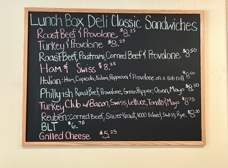 Lunch Box Deli Classic Sandwiches
Roast Beef & Provolone $8.25
Turkey & Provolone $8.25
Roast Beef, Pastrami, Corned Beef & Provolone $8.50
Ham & Swiss $8.25
Italian: Ham, Capicola, Salami, Pepperoni & Provolone on a
Philly: Roast Beef, Provolone, Green Pepper, Onion, Mayo
Turkey Club w/ Bacon, Swiss, Lettuce, Tomato, Mayo $8.75
Reuben: Corned Beef, Sauerkraut, 1000 Island, Swiss, Rye
BLT $6.75
Grilled Cheese $5.25